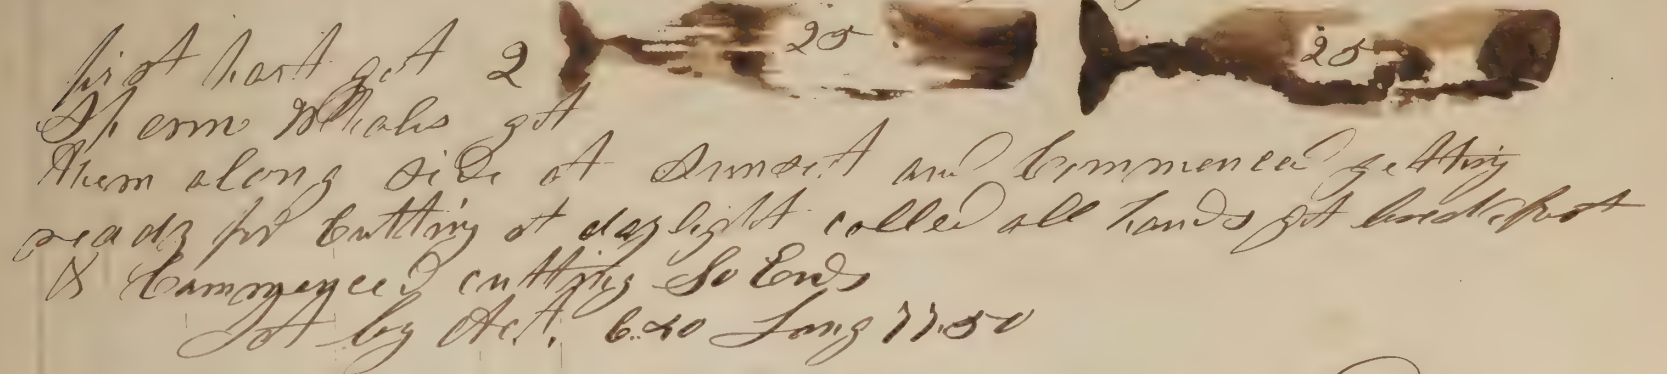 first part got 2 25 25
Sperm Whales got
them along side at Sunset and Commenced getting
ready for Cutting at daylight called all hands got breakfast
& Commenced cutting So Ends
Lat by Act. 6.20 Long 77.50